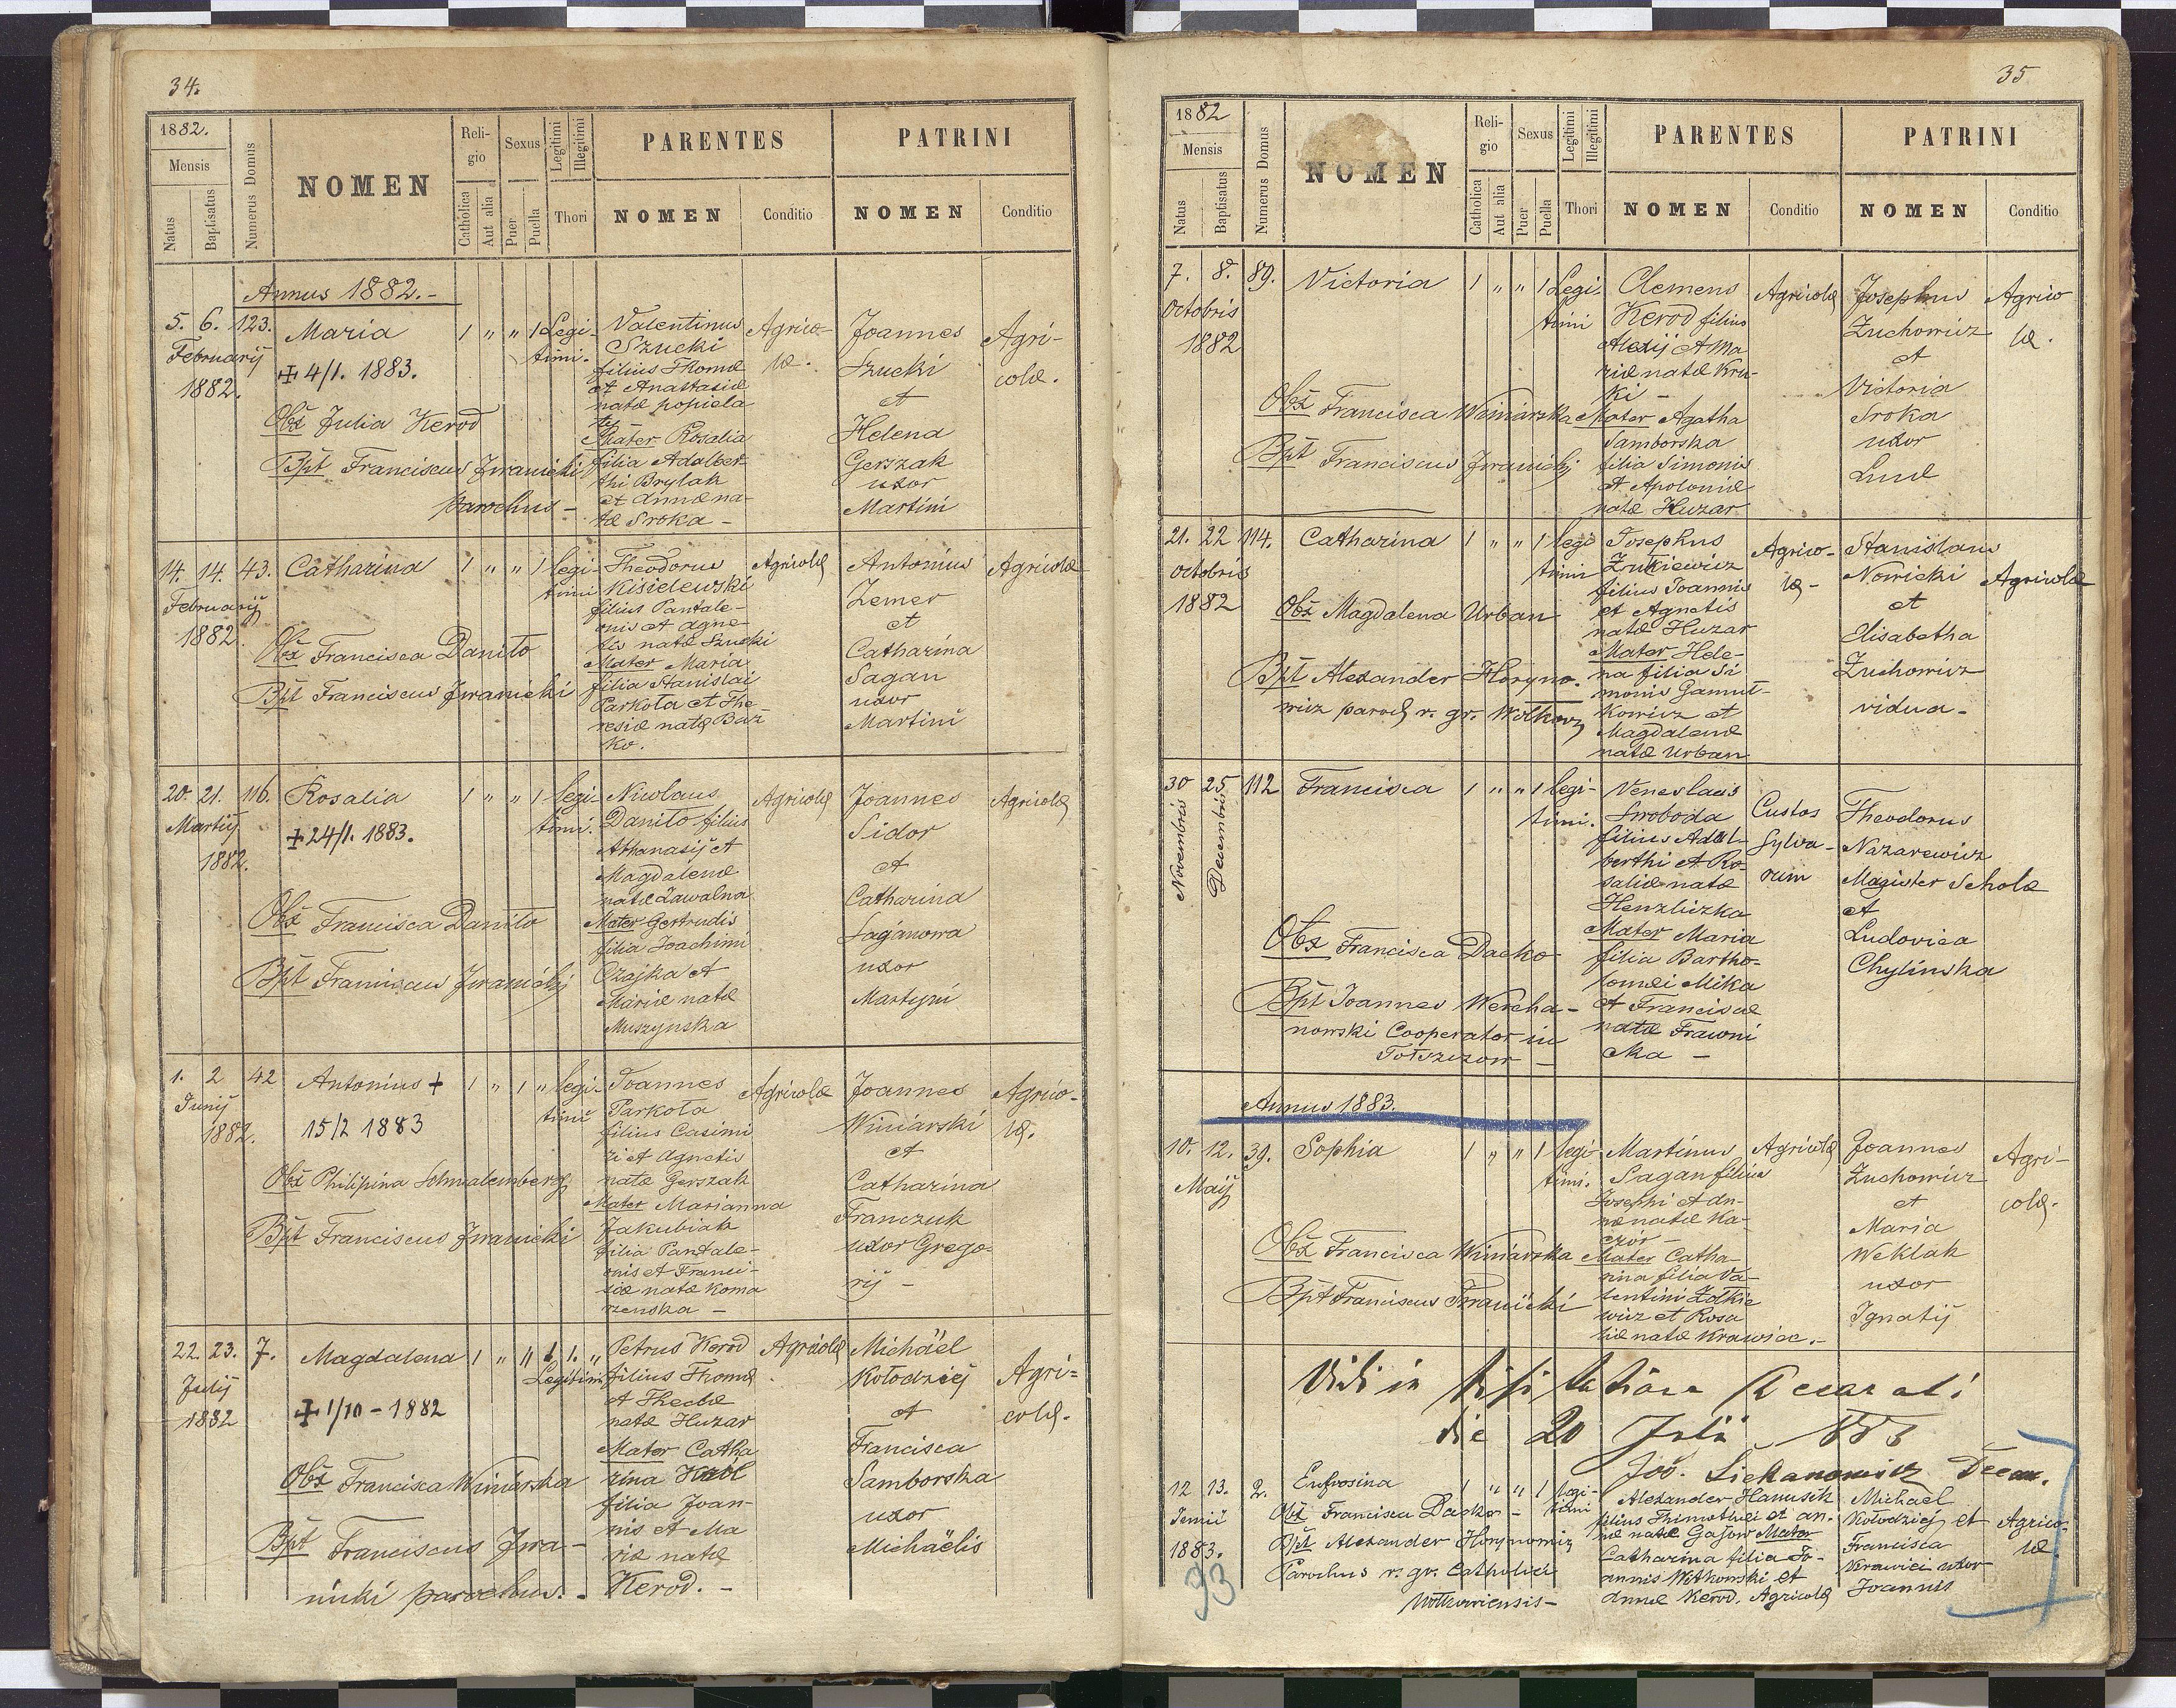 34.
1882.
Mensis
Natus
Baptisatus
Numerus Domus
NOMEN
Reli-
gio
Catholica
Aut alia
Sexus
Puer
Puella
Legitimi
Illegitimi
Thori
PARENTES
NOMEN
Conditio
PATRINI
NOMEN
Conditio
Annus 1882.-
5. 6. 123.
Februarij
1882.
Maria
✠ 4/1. 1883.
Obs Julia Kerod
Bpt Franciscus Iwanicki
parochus -
1 " " 1 Legi-
timi.
Valentinus
Szucki
filius Thomæ
et Anastasiæ
natæ popiela
Mater Rosalia
filia Adalber
thi Brylak
et Annæ na-
tæ Sroka -
Agrico-
læ.
Joannes
Szucki
et
Helena
Gerszak
uxor
Martini
Agri-
colæ.
14. 14. 43.
Februarij
1882.
Catharina
Obs Francisca Daniło
Bpt Franciscus Iwanicki
1 " " 1 legi-
timi
Theodorus
Kisielewski
filius Pantale-
onis et Agne-
tis natæ Szucki
Mater Maria
filia Stanislai
Parkoła et The-
resiæ natæ Baz
ko.
Agricolæ
Antonius
Zemer
et
Catharina
Sagan
uxor
Martini
Agricolæ
20. 21. 116.
Martij
1882.
Rosalia
✠ 24/1. 1883.
Obs Francisca Daniło
Bpt Franciscus Iwanicki
1 " " 1 legi-
timi.
Nicolaus
Daniło filius
Athanasij et
Magdalenæ
natæ Zawalna
Mater Gertrudis
filia Joachimi
Czajka et
Mariæ natæ
Muszynska
Agricolæ
Joannes
Sidor
et
Catharina
Saganowa
uxor
Martyni
Agricolæ
1. 2 42
Junij
1882.
Antonius +
15/2 1883
Obs Philipina Schmalenberg
Bpt Franciscus Iwanicki
1 " 1 " legi-
timi
Joannes
Parkoła
filius Casimi
ri et Agnetis
natæ Gerszak
Mater Marianna
Jakubiak
filia Pantale-
onis et Franci-
scæ natæ Koma
rzenska -
Agricolæ
Joannes
Winiarski
et
Catharina
Franczuk
uxor Grego-
rij -
Agrico-
læ.
22. 23. 7.
Julij
1882
Magdalena
✠ 1/10 - 1882
Obs Francisca Winiarska
Bpt Franciscus Iwa-
nicki parochus. -
1 " " 1 1. "
Legitimi
Petrus Kerod
filius Thomæ
et Theclæ
natæ Huzar
Mater Catha
rina
filia Joan-
nis et Ma
riæ natæ
Kerod. -
Agricolæ
Michäel
Kołodziej
et
Francisca
Samborska
uxor
Michäelis
Agri=
colæ.
35
1882
Mensis
Natus
Baptisatus
Numerus Domus
NOMEN
Reli-
gio
Catholica
Aut alia
Sexus
Puer
Puella
Legitimi
Illegitimi
Thori
PARENTES
NOMEN
Conditio
PATRINI
NOMEN
Conditio
7. 8. 89.
Octobris
1882
Victoria
Obs Francisca Winiarska
Bpt Franciscus Iwanicki
1 " " 1 Legi-
timi
Clemens
Kerod filius
Alexij et Ma
riæ natæ Kru-
ki -
Mater Agatha
Samborska
filia Simonis
et Apoloniæ
natæ Huzar
Agricolæ
Josephus
Zuchowicz
et
Victoria
Sroka
uxor
Lucæ
Agrico
læ.
21. 22 114.
Octobris
1882
Catharina
Obs Magdalena Urban
Bpt Alexander Horyno-
wicz paroch r. gr. Wołkow
1 " " 1 legi
timi
Josephus
Żułkiewicz
filius Joannis
et Agnetis
natæ Huzar
Mater Hele-
na filia Si
monis Gamuł-
kowicz et
Magdalenæ
natæ Urban
Agrico-
læ -
Stanislaus
Nowicki
et
Elisabetha
Zuchowicz
vidua -
Agricolæ
30 25 112
Novembris
Decembris
Francisca
Obs Francisca Dacko
Bpt Joannes Wercha-
nowski Cooperator in
Tołszczow -
1 " " 1 legi-
timi.
Veneslaus
Swoboda
filius Adal-
berthi et Ro-
saliæ natæ
Henzliczka
Mater Maria
filia Bartho-
lomei Mika
et Franciscæ
natæ Frawni
cka -
Custos
Sylva-
rum
Theodorus
Nazarewicz
Magister Scholæ
et
Ludovica
Chylinska
Annus 1883.
10. 12. 39.
Maij
Sophia
Obs Francisca Winiarska
Bpt Franciscus Iwanicki
1 " " 1 legi
timi.
Martinus
Sagan filius
Josephi et An-
næ natæ Ka-
czor -
Mater Catha-
rina filia Va-
lentini Żołkie
wicz et Rosa
liæ natæ Krawiec. -
Agricolæ
Joannes
Zuchowicz
et
Maria
Weklak
uxor
Ignatij
Agri-
colæ.
Vidi in
Decanali
die 20 Julii 1883
Joś. Decan.
12 13. 2.
Junii
1883.
Eufrosina
Obs Francisca Dacko -
Bpt Alexander Horynowicz
Parochus r. gr. Catholici
Wołkowiensis -
1 " " 1 legi-
timi
Alexander Hanusik
filius Thimothei et An-
næ natæ Gajow Mater
Catharina filia Jo-
annis Witkowski et
Annæ Kerod. Agricolæ
Michael
Kołodziej et
Francisca
Krawiec uxor
Joannis
Agrico-
læ.
33